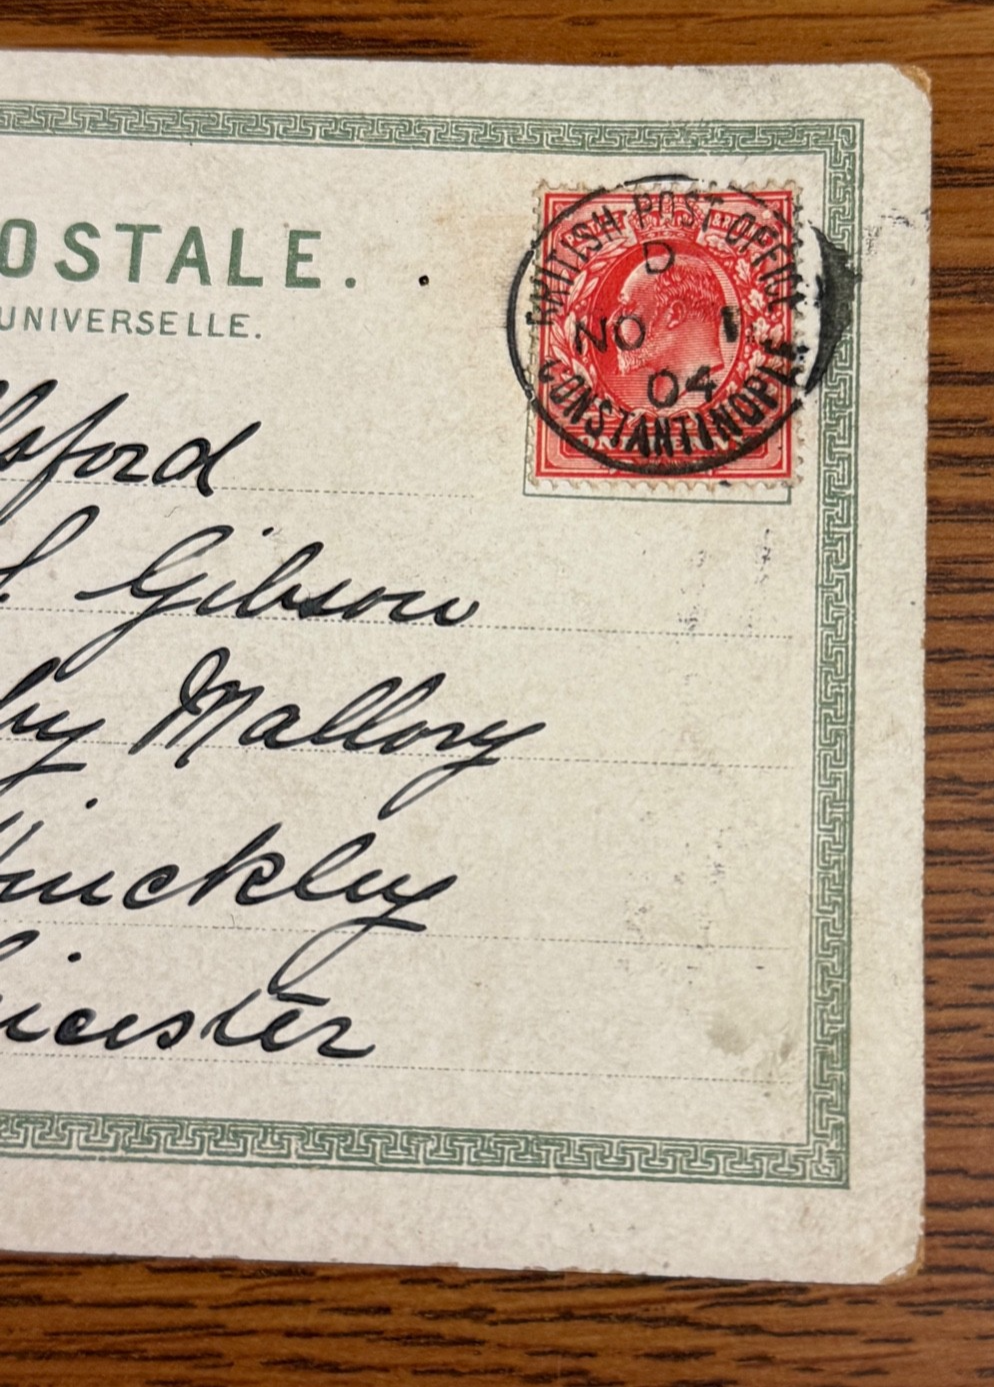 OSTALE.
UNIVERSELLE.
BRITISH POST OFFICE
D
NO
04
CONSTANTINOPLE
lsford
Gibson
by Mallory
Hinckley
eicester